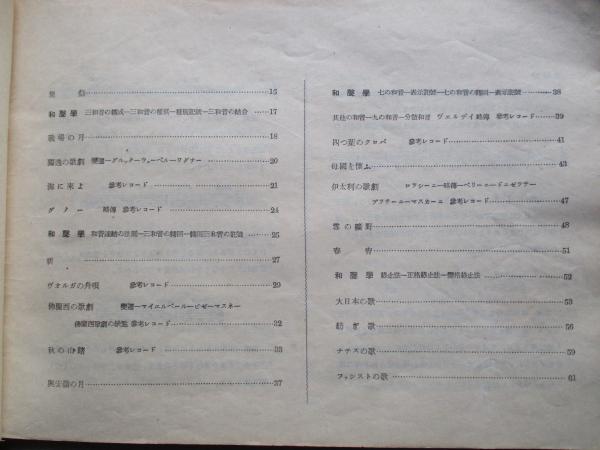 15
和聲學 三和音の構成―三和音の種類―種類記號―三和音の結合 17
戰場の月 18
獨逸の歌劇 變遷―グルック―ウェーベル―ワグナー 20
海に來よ 參考レコード 21
グノー 略傳 參考レコード 24
和聲學 和音連結の法則―三和音の轉回―轉回三和音の記號 25
27
ヴォルガの舟唄 參考レコード 29
佛蘭西の歌劇 變遷―マイエルベール―ビゼー―マスネー
佛蘭西歌劇の 參考レコード 32
秋の山路 參考レコード 33
興安嶺の月 37
和聲學 七の和音―表示記號―七の和音の轉回―表示記號 38
其他の和音―九の和音―分散和音 ヴェルデイ略傳 參考レコード 39
四つ葉のクロバ 參考レコード 41
母國を懷ふ 43
伊太利の歌劇 ロッシーニー略傳―ベリーニ―ドニゼッテー
プッチーニ―マスカーニ 參考レコード 47
雲の曠野 48
春宵 51
和聲學 終止法―正格終止法―變格終止法 52
大日本の歌 53
紡ぎ歌 56
ナチスの歌 59
ファシストの歌 61